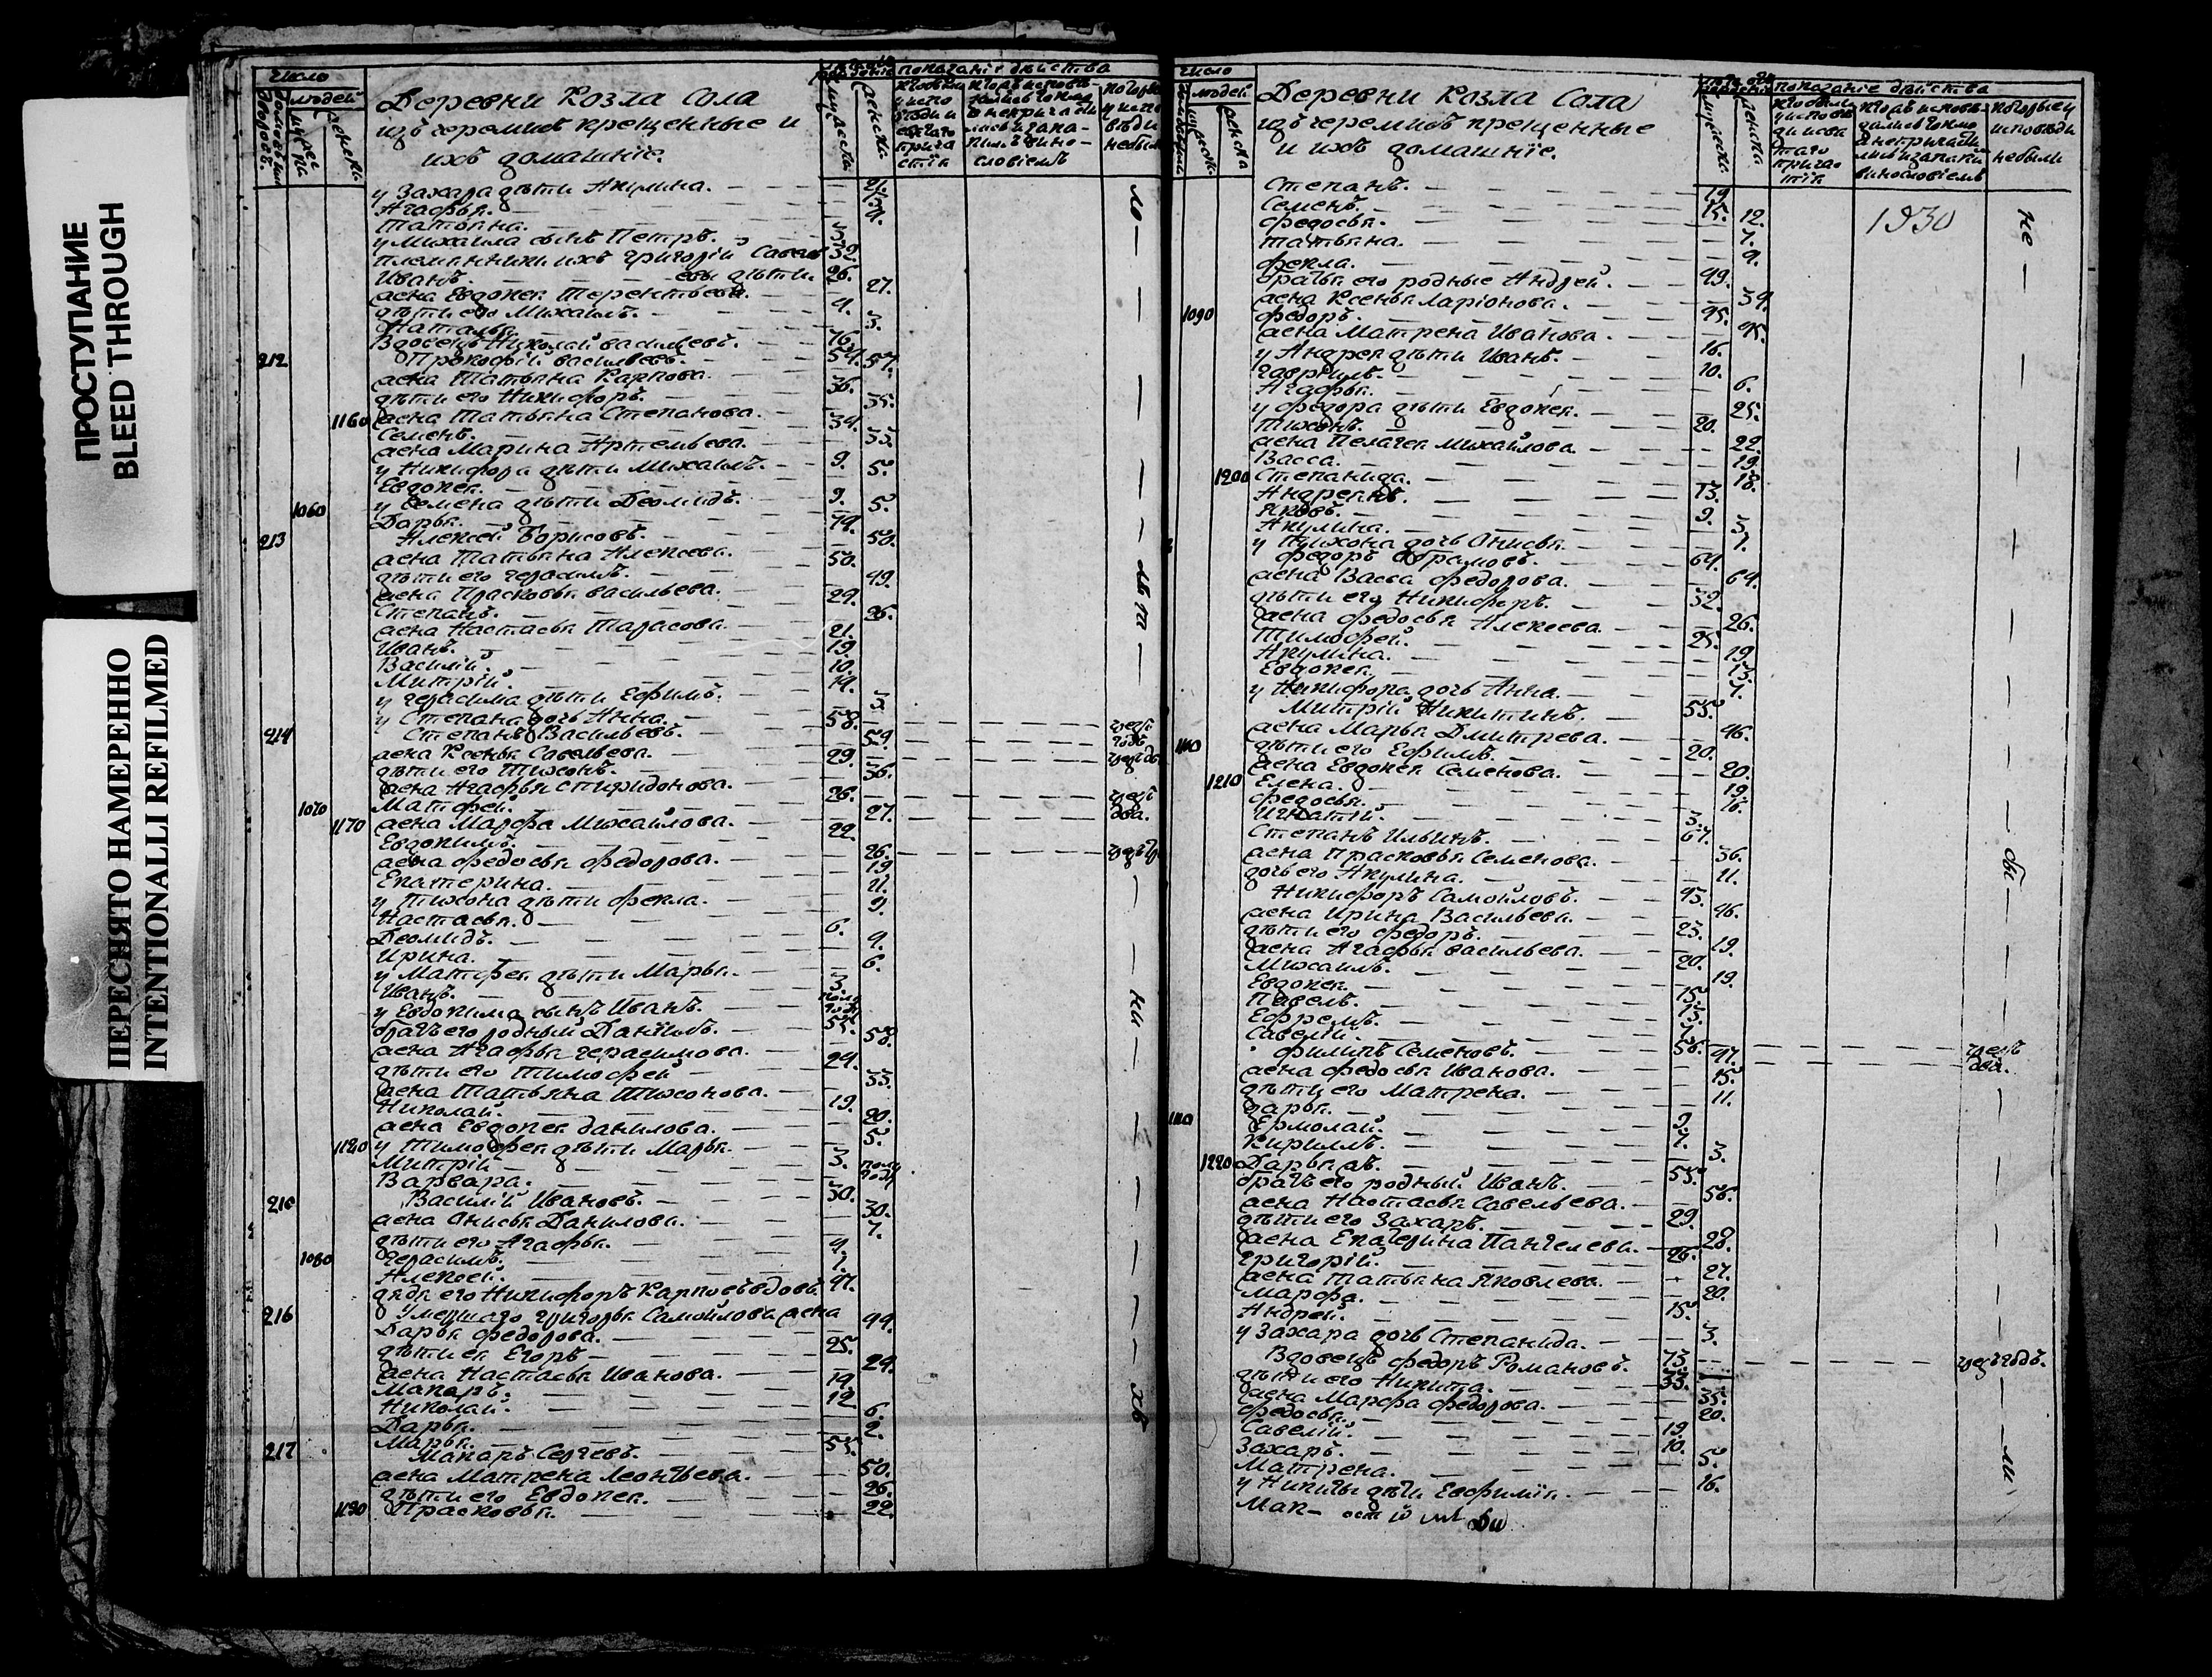 ПРОСТУПАНИЕ
BLEED THROUGH
ПЕРЕСНЯТО НАМЕРЕННО
INTENTIONALLI REFILMED
число
людей
Деревни Козла Сола
изъ черемисъ крещенные и
ихъ домашнїе.
показанїе действа
у Захара дѣти Акулина. 21.
Агафья.
Татьяна. 9.
у Михаила сынъ Петръ. 3.
племянники ихъ Григорїй 32.
Иванъ. 26.
жена Евдокея Терентьева. 27.
дѣти его Михаилъ. 4.
Наталья. 3.
Вдовецъ Николай Васильевъ. 76.
212 Прокофїй Васильевъ. 54.
жена Татьяна Карпова. 57.
дѣти его Никифоръ. 36.
1160 жена Татьяна Степанова. 35.
Семенъ. 34.
жена Марина Артемьева. 33.
у Никифора дѣти Михаилъ. 9.
Евдокея. 5.
1060 у Семена дѣти Деомидъ. 9.
Дарья. 5.
213 Алексей Борисовъ.
жена Татьяна Алексеева. 50.
дѣти его Герасимъ. 50.
жена Прасковья Васильева. 49.
Степанъ. 29.
жена Настасья Тарасова. 26.
Иванъ. 21.
Василїй. 19.
Митрїй. 10.
у Герасима дѣти Ефимъ.
у Степана дочь Анна. 3.
214 Степанъ Васильевъ. 58.
жена Ксенья Савельева. 59.
дѣти его Тихонъ. 29.
жена Агафья Спиридонова. 36.
1070 Матфей. 26.
1170 жена Марфа Михайлова. 27.
Евдокимъ. 22.
жена Федосья Федорова. 26.
Екатерина. 19.
у Тихона дѣти Фекла. 11.
Настасья. 9.
Деомидъ. 6.
Ирина. 9.
у Матфея дѣти Марья. 6.
Иванъ. 3.
у Евдокима сынъ Иванъ. полу года
братъ его родный Данїилъ. 55.
жена Агафья Герасимова. 58.
дѣти его Тимофей 29.
жена Татьяна Тихонова. 33.
Николай. 19.
жена Евдокея Данилова. 20.
у Тимофея дѣти Марья. 5.
Митрїй 3.
Варвара. полу года
Василїй Ивановъ. 30.
жена Анисья Данилова. 30.
дѣти его Агафья. 7.
1080 Герасимъ. 4.
Алексей. 1.
дядя его Никифоръ Карповъ вдовъ. 47.
216 Умершаго Григорья Самойлова жена
Дарья Федорова. 44.
дѣти ея Егоръ 25.
жена Настасья Иванова. 24.
Макаръ. 19.
Николай. 12.
Дарья. 6.
Марья. 2.
217 Макаръ Сергевъ. 55.
жена Матрена Леонтьева. 50.
дѣти его Евдокея. 26.
Прасковья. 22.
число
людей
Деревни Козла Сола
изъ черемисъ крещенные
и ихъ домашнїе.
показанїе действа
1830
Степанъ. 19.
Семенъ. 15.
Федосья. 12.
Татьяна. 7.
Фекла. 9.
братья его родные Андрей. 49.
жена Ксенья Ларїонова. 39.
1090 Федоръ. 45.
жена Матрена Иванова. 45.
у Андрея дѣти Иванъ. 16.
Гаврилъ. 10.
Агафья. 6.
у Федора дѣти Евдокея. 25.
Тихонъ. 20.
жена Пелагея Михайлова. 22.
Васса. 19.
1200 Степанида. 18.
Андреянъ. 13.
Яковъ. 9.
Акулина. 3.
у Тихона дочь Анисья. 1.
Федоръ Абрамовъ. 64.
жена Васса Федорова. 64.
дѣти его Никифоръ. 32.
жена Федосья Алексеева. 26.
Тимофей. 25.
Акулина. 19.
Евдокея. 13.
у Никифора дочь Анна. 1.
Митрїй Никитинъ. 55.
жена Марья Дмитрева. 46.
дѣти его Ефимъ. 20.
жена Евдокея Семенова. 20.
1210 Елена. 19.
Федосья. 16.
Игнатїй. 3.
Степанъ Ильинъ. 67.
жена Прасковья Семенова. 36.
дочь его Акулина. 11.
Никифоръ Самойловъ. 45.
жена Ирина Васильева. 46.
дѣти его Федоръ. 23.
жена Агафья Васильева. 19.
Михаилъ. 20.
Евдокея. 19.
Павелъ. 15.
Ефремъ. 13.
Савелїй. 7.
Филипъ Семеновъ. 56.
жена Федосья Иванова. 47.
дѣти его Матрена. 15.
Дарья. 11.
Ермолай. 9.
Кирилъ. 7.
1220 Дарья 3.
братъ его родный Иванъ. 55.
жена Настасья Савельева. 56.
дѣти его Захаръ. 29.
жена Екатерина Пантелева. 28.
Григорїй. 26.
жена Татьяна Яковлева. 27.
Марфа. 20.
Андрей. 15.
у Захара дочь Степанида. 3.
Вдовецъ Федоръ Романовъ. 73.
дѣти его Никита. 33.
жена Марфа Федорова. 35.
Федосья. 20.
Савелїй. 19.
Захаръ. 10.
Матрена. 5.
у Никиты дѣти Евфимїя. 16.